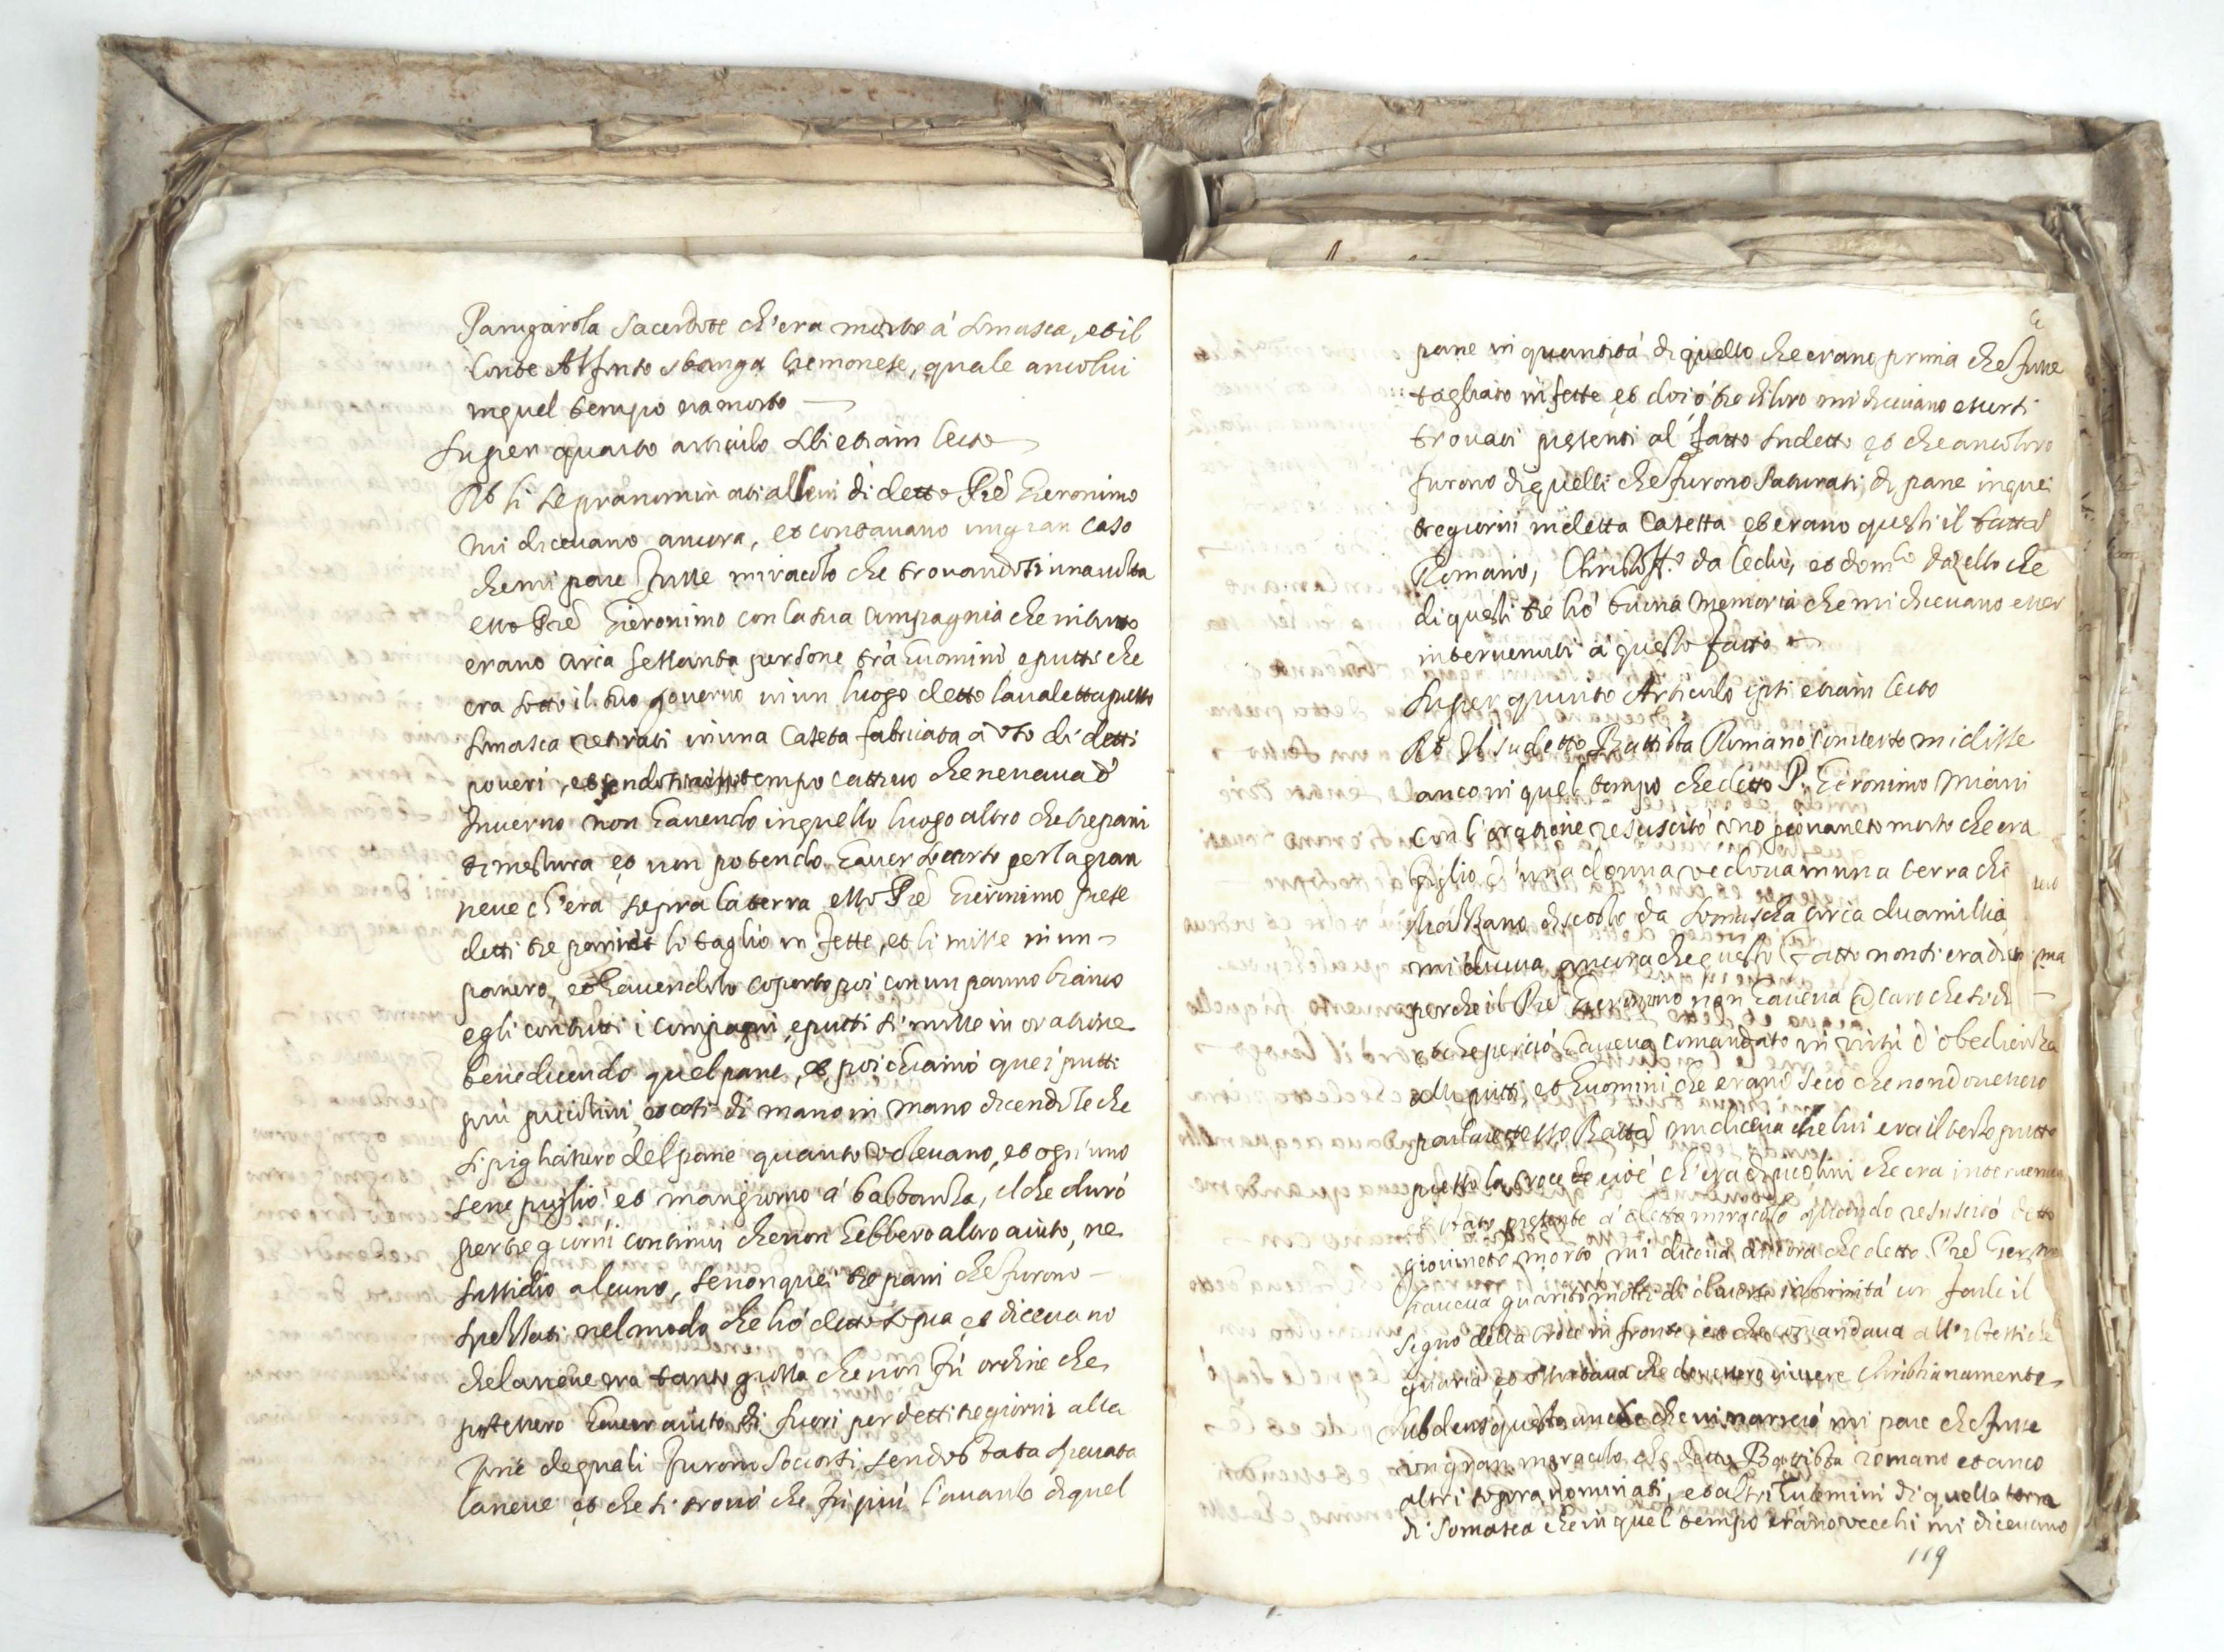 Panigarola sacerdote ch'era morto à Somasca, et il
Conte Alfonso stanga Cremonese, quale ancolui
inquel tempo era morto
Super quarto articulo sibi etiam lecto
Rt li sopranominati allevi di detto Pre Hieronimo
mi dicevano ancora, et contavano un gran caso
che mi pare fusse miracolo che trovandosi una volta
esso Pre Hieronimo con la sua compagnia che in tutto
erano circa sessanta persone trà huomini e putti che
era sotto il suo governo in un luogo detto la valetta presso
Somasca retirati in una Casetta fabricata à uso di detti
poveri, essendo tempo cattivo che nevava d'
Inverno non havendo in quello luogo altro che tre pani
di mestura et non potendo haver socorso per la gran
neve ch'era sopra la terra esso Pre Hieronimo prese
detti tre pani et lo tagliò in fette, et li misse in un
panero, et havendolo coperto poi con un panno bianco
egli con tutti i compagni, e putti si misse in oratione
benedicendo quel pane, et poi chiamò quei putti
più piccolini, et così di mano in mano dicendole che
si pigliassero del pane quanto volevano, et ogn'uno
sene pigliò et mangiorno à bastanza, il che durò
per tre giorni continui che non hebbero altro aiuto, ne
sussidio alcuno, se non quei tre pani che furono
spezzati nel modo che hò detto sopra et dicevano
che la neve era tanto grossa che non fù ordine che
potessero haver aiuto di fuori per detti tre giorni alla
fine de quali furono socorsi sendo stata spezzata
la neve et che si trovò che fù più l'avanzo di quel
pane in quantità di quello che erano prima che fusse
tagliato in fette et doi ò tre di loro mi dicevano essersi
trovati presenti al fatto sudetto et che ancoloro
furono di quelli che furono saturati di pane in quei
tre giorni in detta Casetta et erano questi il Batta
Romano, Christoff.o da Lecho, et dom.co dazello che
di questi tre hò buona memoria che mi dicevano esser
intervenuti à questo fatto
Super quinto Articulo ipsi etiam lecto
Rt Il sudetto Battista Romano Converso mi disse
anco in quel tempo che detto P. Hieronimo Miani
con l'oratione resuscitò uno giovaneto morto che era
figlio d'una donna vedova in una terra
discosto da Somascha circa dua millia
mi diceva ancora che questo fatto non si era
perche il Pre Hieronimo non haveva caro che si
et che perciò haveva comandato in virtù d'obedienza
alli putti, et huomini che erano seco che non dovessero
parlare et esso Batta mi diceva che lui era il terzo putto
presso la croce cioè ch'era di piccolini che era intervenuto
et stato presente à detto miracolo quando resuscitò detto
giovineto morto mi diceva ancora che detto Pre
haveva guarito molti di diverse infirmità con farli il
segno della croce in fronte, et che comandava all'istessi che
guariva et essortava che dovessero vivere christianamente
Subdens questa anco che vi narrerò mi pare che fusse
un gran miracolo che detto Battista romano et anco
altri sopranominati, et altri huomini di quella terra
di Somasca che in quel tempo erano vecchi mi dicevano
119